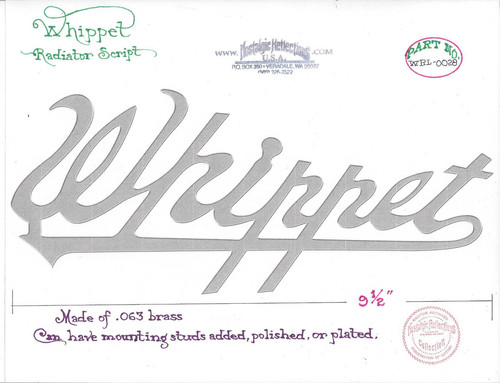 Whippet
Radiator Script
www.Nostalgic Reflections.com
U.S.A.
P.O. BOX 350 • VERADALE, WA 99037
PART NO.
WRL-0028
Whippet
9 1/2"
Made of .063 brass
Can, have mounting studs added, polished, or plated.
Nostalgic Reflections
Collection